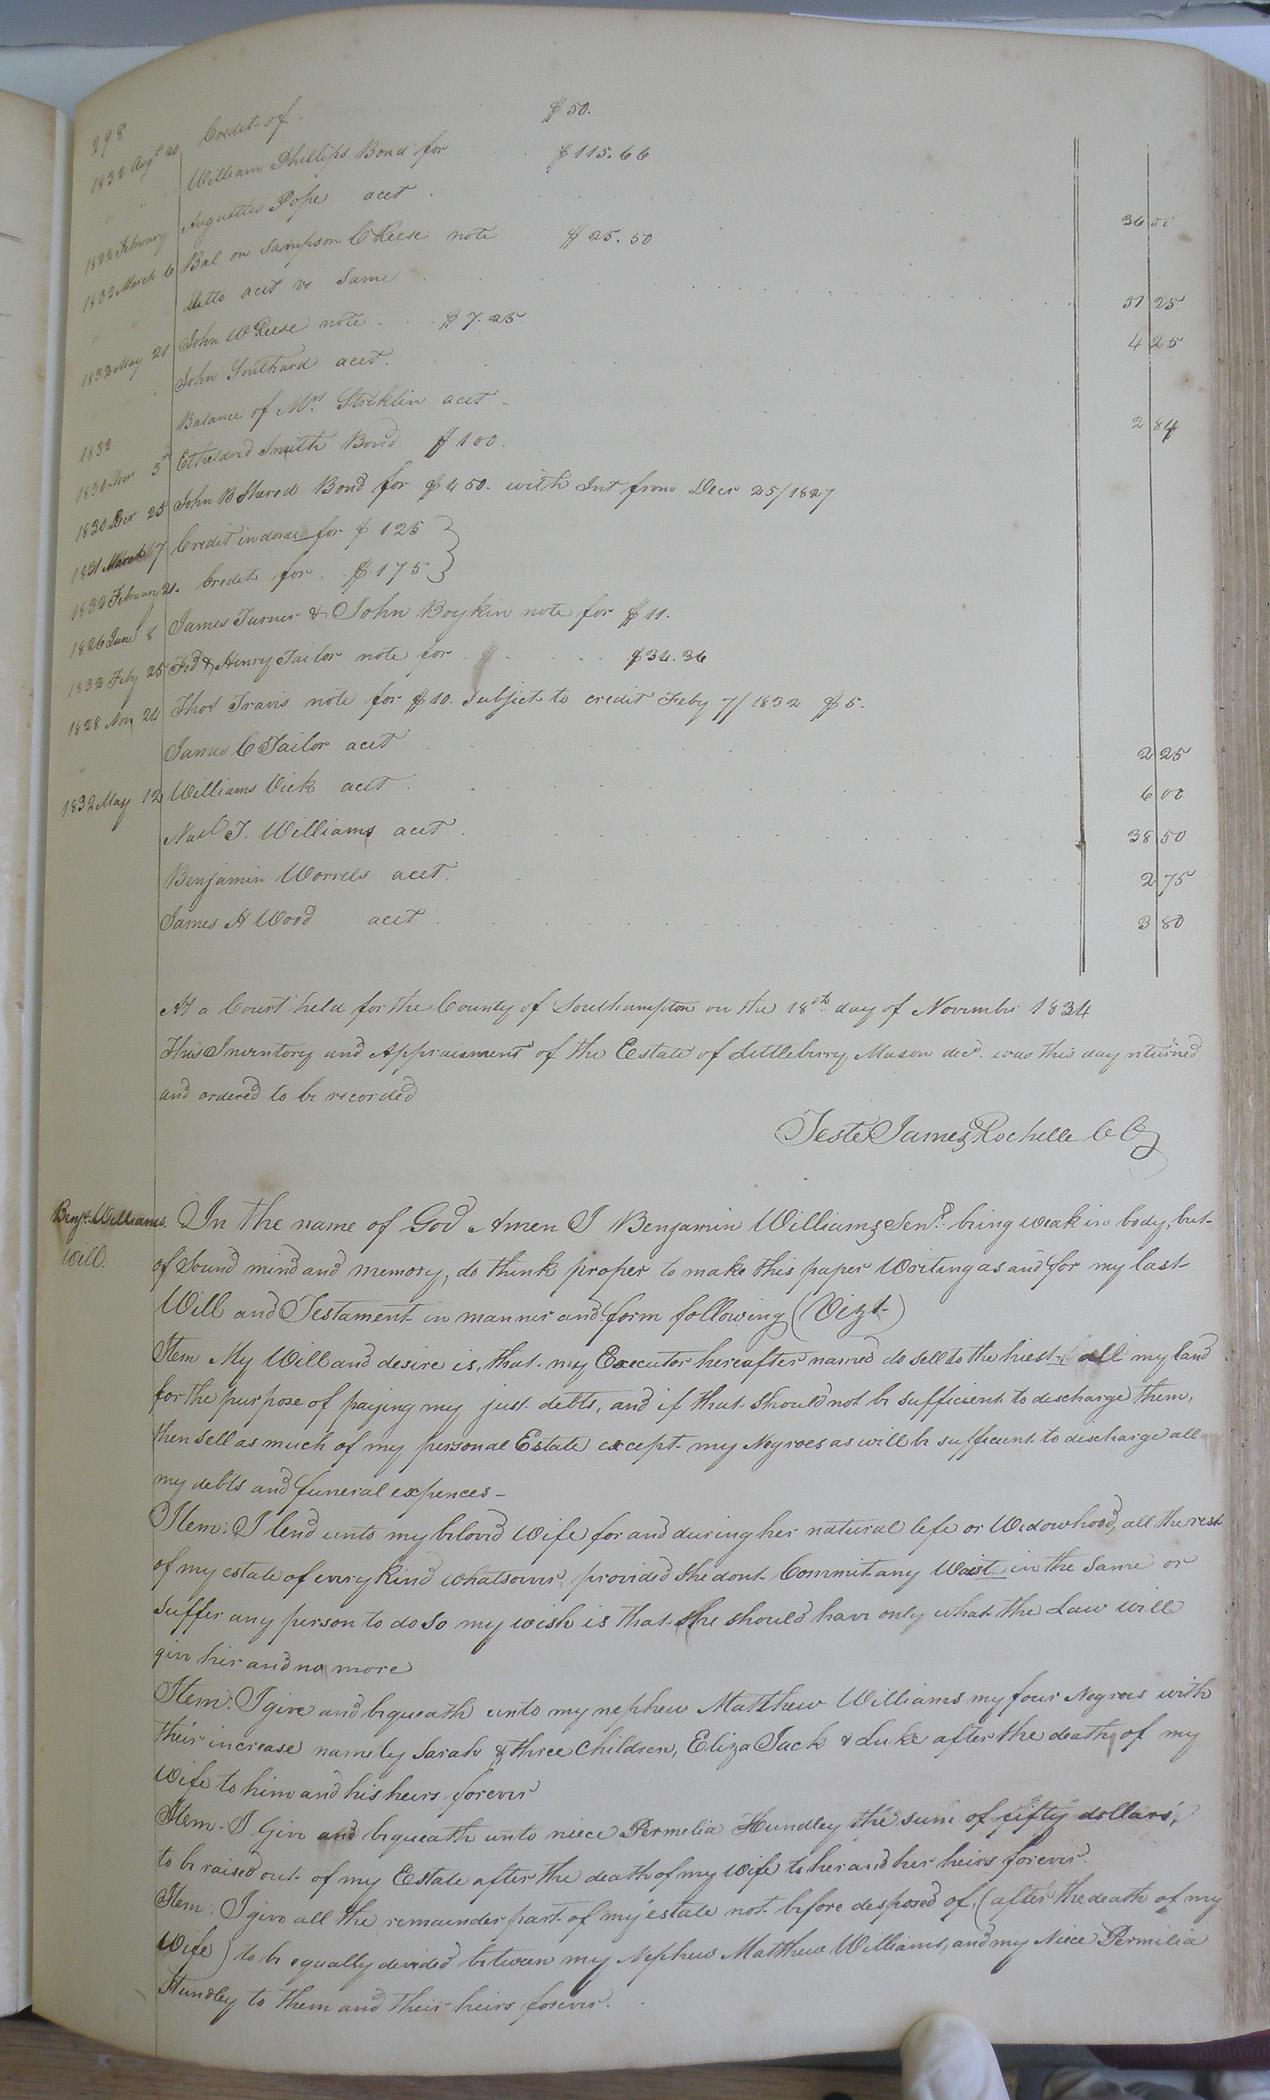 298
Credit of $50.
1832 Augt 20 William Phillips Bond for $115.66
" " Augustus Pope acct 36 50
1832 February Bal on Sampson C Reese note $25.50
1832 March 6 Ditto acct vs Same 37 25
" John W Reese note $7.25
1832 May 21 John Southard acct. 4 25
" Balance of Mrs Stricklin acct 2 84
1832
1830 Decr 3d Etheldred Smith Bond $100.
1830 Decr 25 John B Bond for $450. with Int from Decr 25/1827
1831 March 17 Credit indorse for $125
1832 February 21. Credit for $175
1826 June 8 James Turner & John Boykin note for $11.
1832 Feby 25 Fed & Henry Tailor note for $34.36
1828 Nov 24 Thos Travis note for $10. Subject to credit Feby 7/1832 $5.
James C Tailor acct 2 25
1832 May 12 Williams Vick acct 6 00
Natl T. Williams acct 38 50
Benjamin Worrels acct. 2 75
James H Wood acct 3 80
At a Court held for the County of Southampton on the 18th day of Novembr 1834
This Inventory and Appraisment of the Estate of Littleberry Mason decd. was this day returned
and ordered to be recorded
Teste James Rochelle C C
Benja. Williams. Will.
In the name of God Amen I Benjamin Williams Senr. being weak in body, but
of sound mind and memory, do think proper to make this paper Writing as and for my last
Will and Testament in manner and form following (Vizt)
Item My Will and desire is, that my Executor hereafter named do sell to the hiest all my land
for the purpose of paying my just debts, and if that should not be sufficient to discharge them,
then sell as much of my personal Estate except my Negroes as will be sufficient to discharge all
my debts and funeral expences
Item: I lend unto my beloved Wife for and during her natural life or Widowhood, all the rest
of my estate of every kind whatsoever, provided she dont Commit any Waist in the same or
suffer any person to do so my wish is that she should have only what the Law will
give her and no more
Item: I give and bequeath unto my nephew Matthew Williams my four Negroes with
their increase namely Sarah & three Children, Eliza Jack & Luke after the death of my
Wife to him and his heirs forever
Item I Give and bequeath unto niece Permelia Hundley the sum of fifty dollars,
to be raised out of my Estate after the death of my Wife to her and her heirs forever.
Item: I give all the remainder part of my estate not before disposed of, (after the death of my
Wife) to be equally devided between my Nephew Matthew Williams, and my Niece Permilia
Hundley to them and their heirs forever.